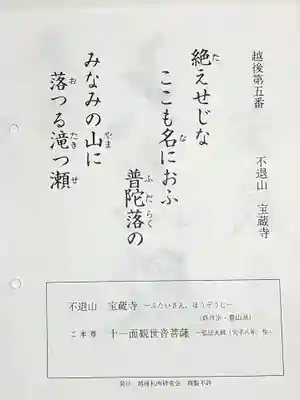 越後第五番　不退山　宝蔵寺
絶えせじな
ここも名におふ
普陀落の
みなみの山に
落つる滝つ瀬
不退山　宝蔵寺 ―ふたいさん、ほうぞうじ―
(真言宗・豊山派)
ご本尊　十一面観世音菩薩
発行　越後札所研究会　複製不許